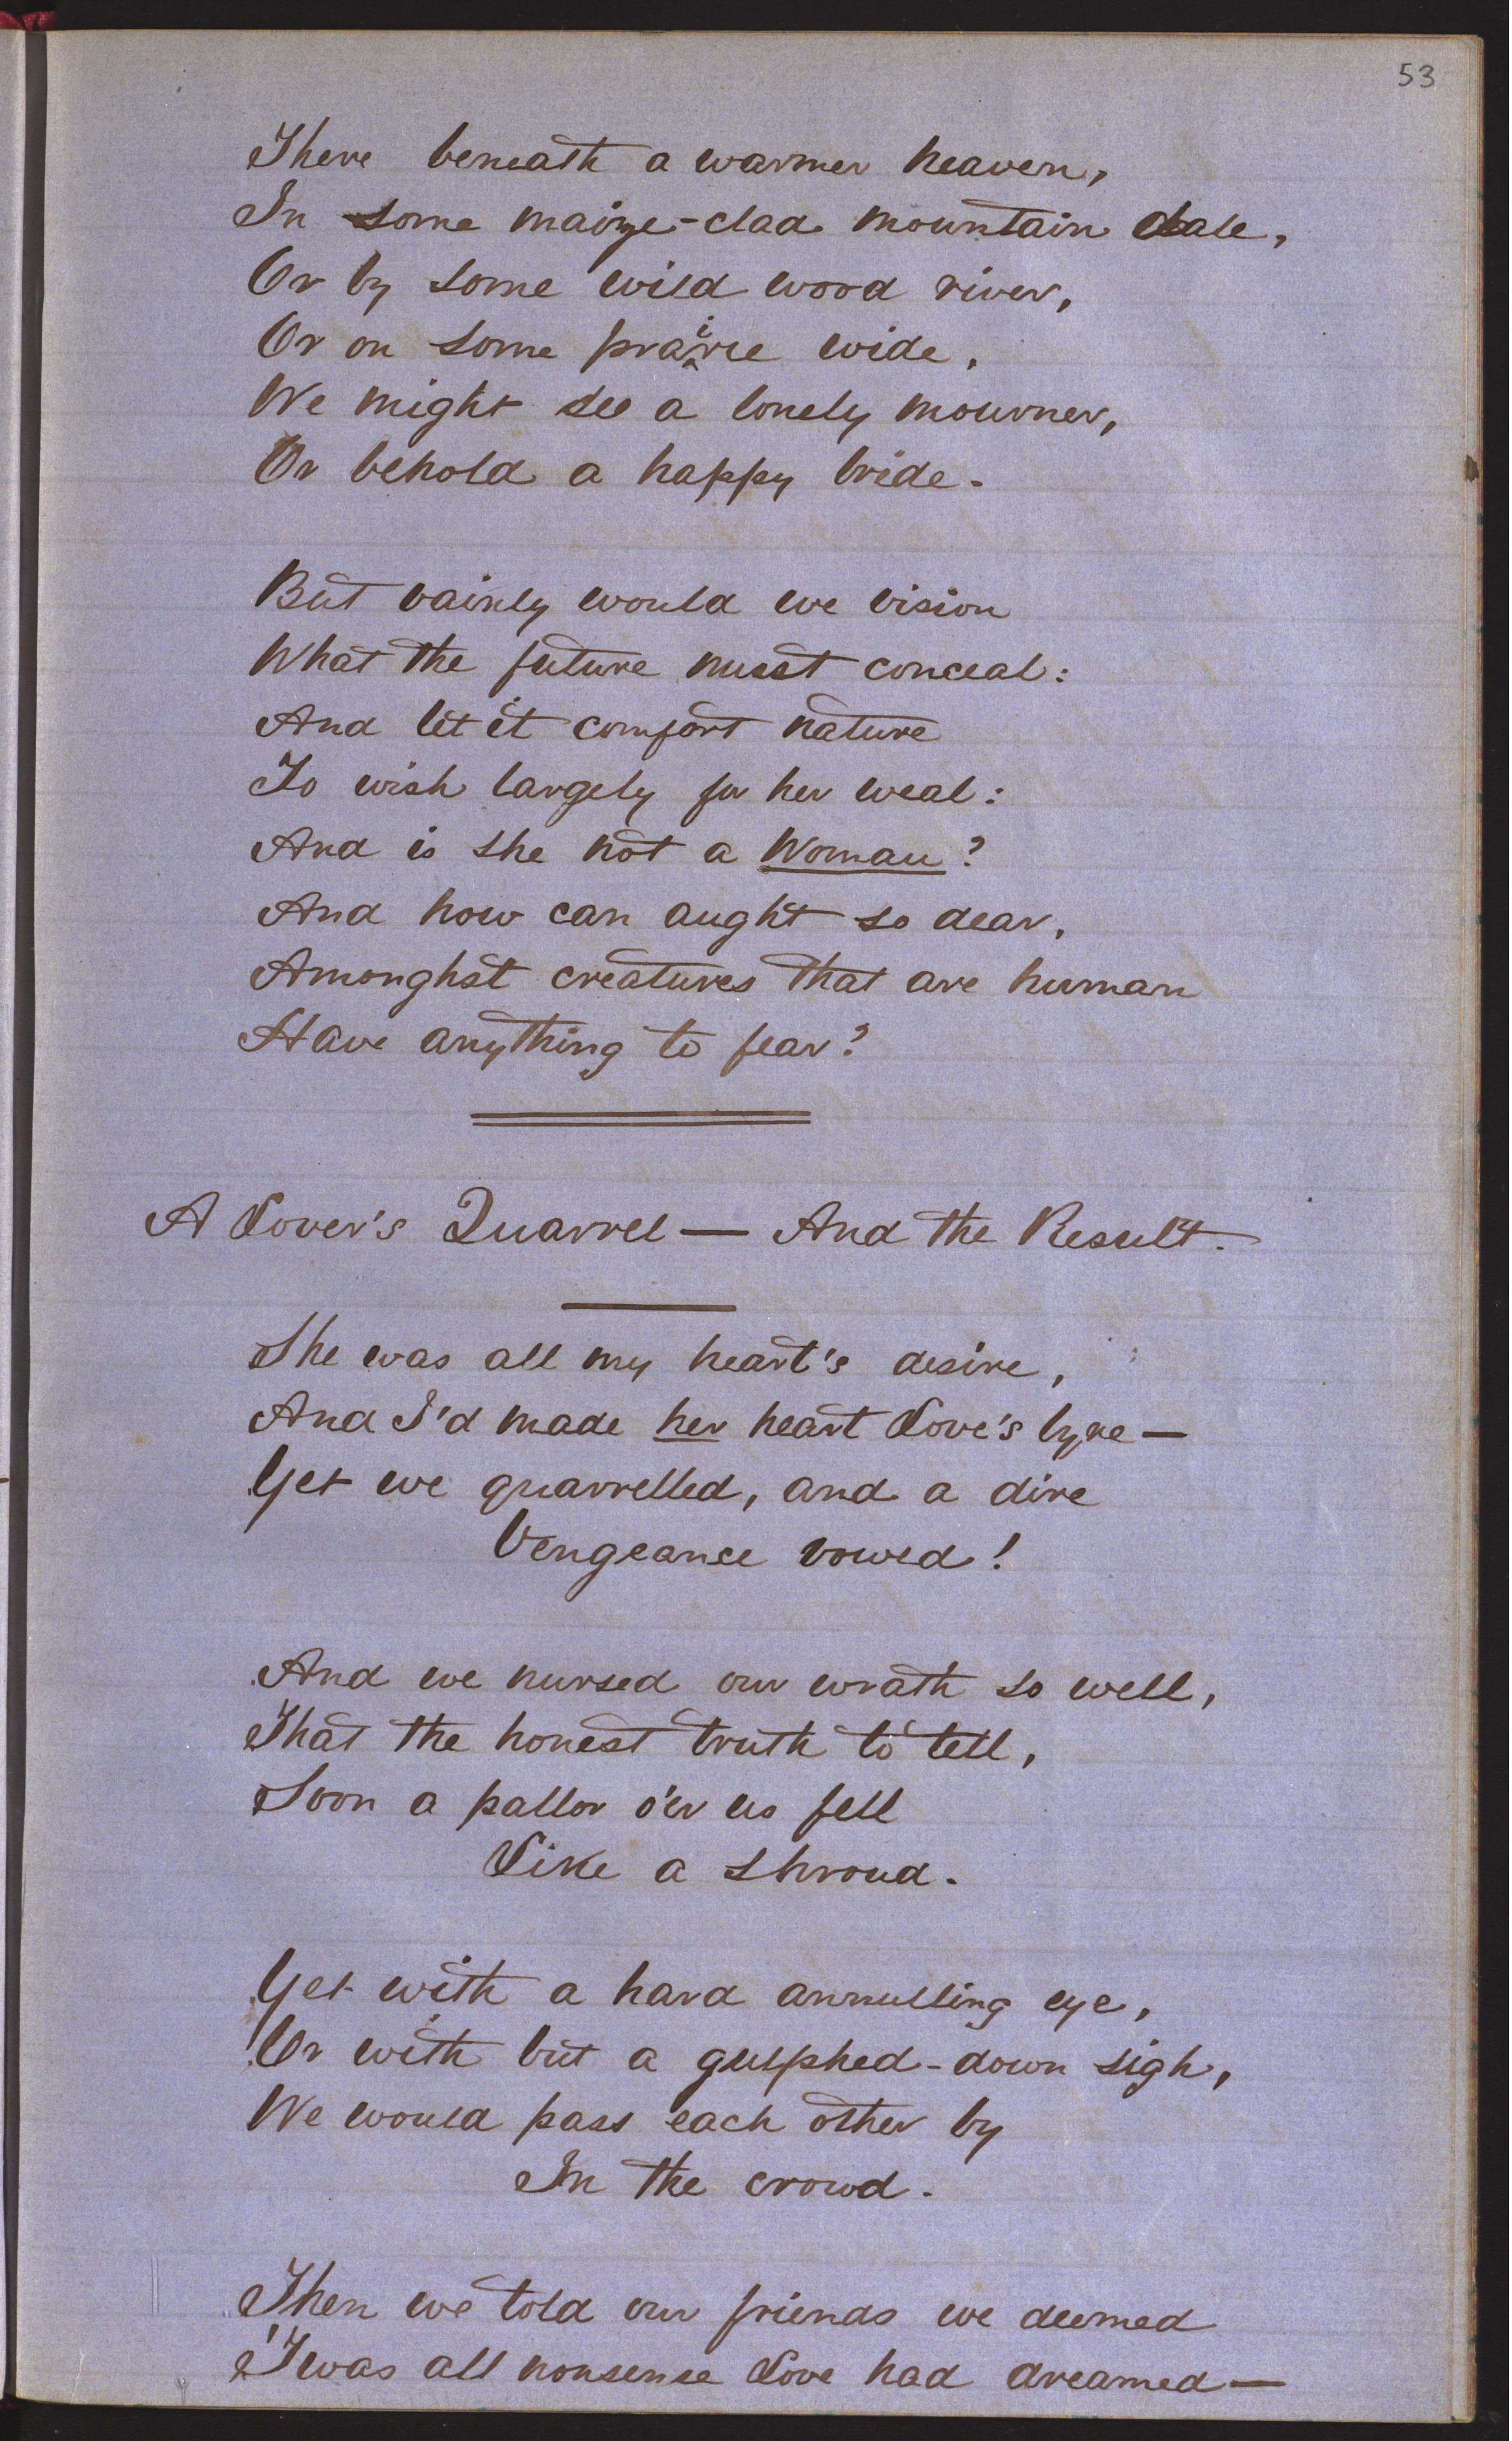 53
There beneath a warmer heaven,
In some maize-clad mountain dale,
Or by some wild wood river,
Or on some prairie wide,
We might see a lonely mourner,
Or behold a happy bride.
But vainly would we vision
What the future must conceal:
And let it comfort nature
To wish largely for her weal:
And is she not a Woman?
And how can aught so dear,
Amonghst creatures that are human
Have anything to fear?
A Lover's Quarrel — And the Result.
She was all my heart's desire,
And I'd made her heart Love's lyre —
Yet we quarrelled, and a dire
Vengeance vowed!
And we nursed our wrath so well,
That the honest truth to tell,
Soon a pallor o'er us fell
Like a shroud.
Yet with a hard annulling eye,
Or with but a gulphed-down sigh,
We would pass each other by
In the crowd.
Then we told our friends we deemed
'Twas all nonsense Love had dreamed —